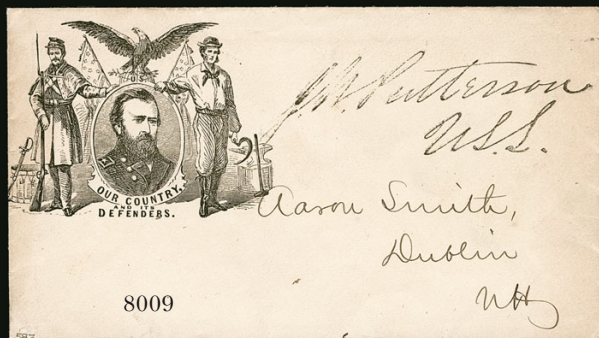 OUR COUNTRY,
AND ITS
DEFENDERS.
J.W. Patterson
U.S.S.
Aaron Smith,
Dublin
NH
8009
587